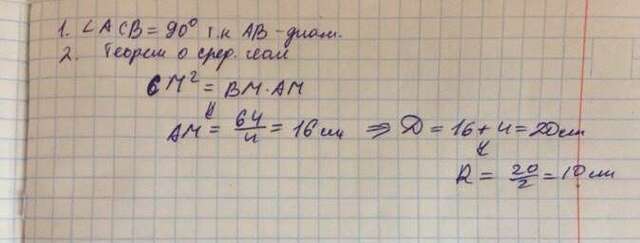 1. ∠ACB = 90° т.к AB - диам.
2. Теорем о сред. геом
CM² = BM · AM
AM = 64/4 = 16 см ⇒ D = 16 + 4 = 20 см
R = 20/2 = 10 см